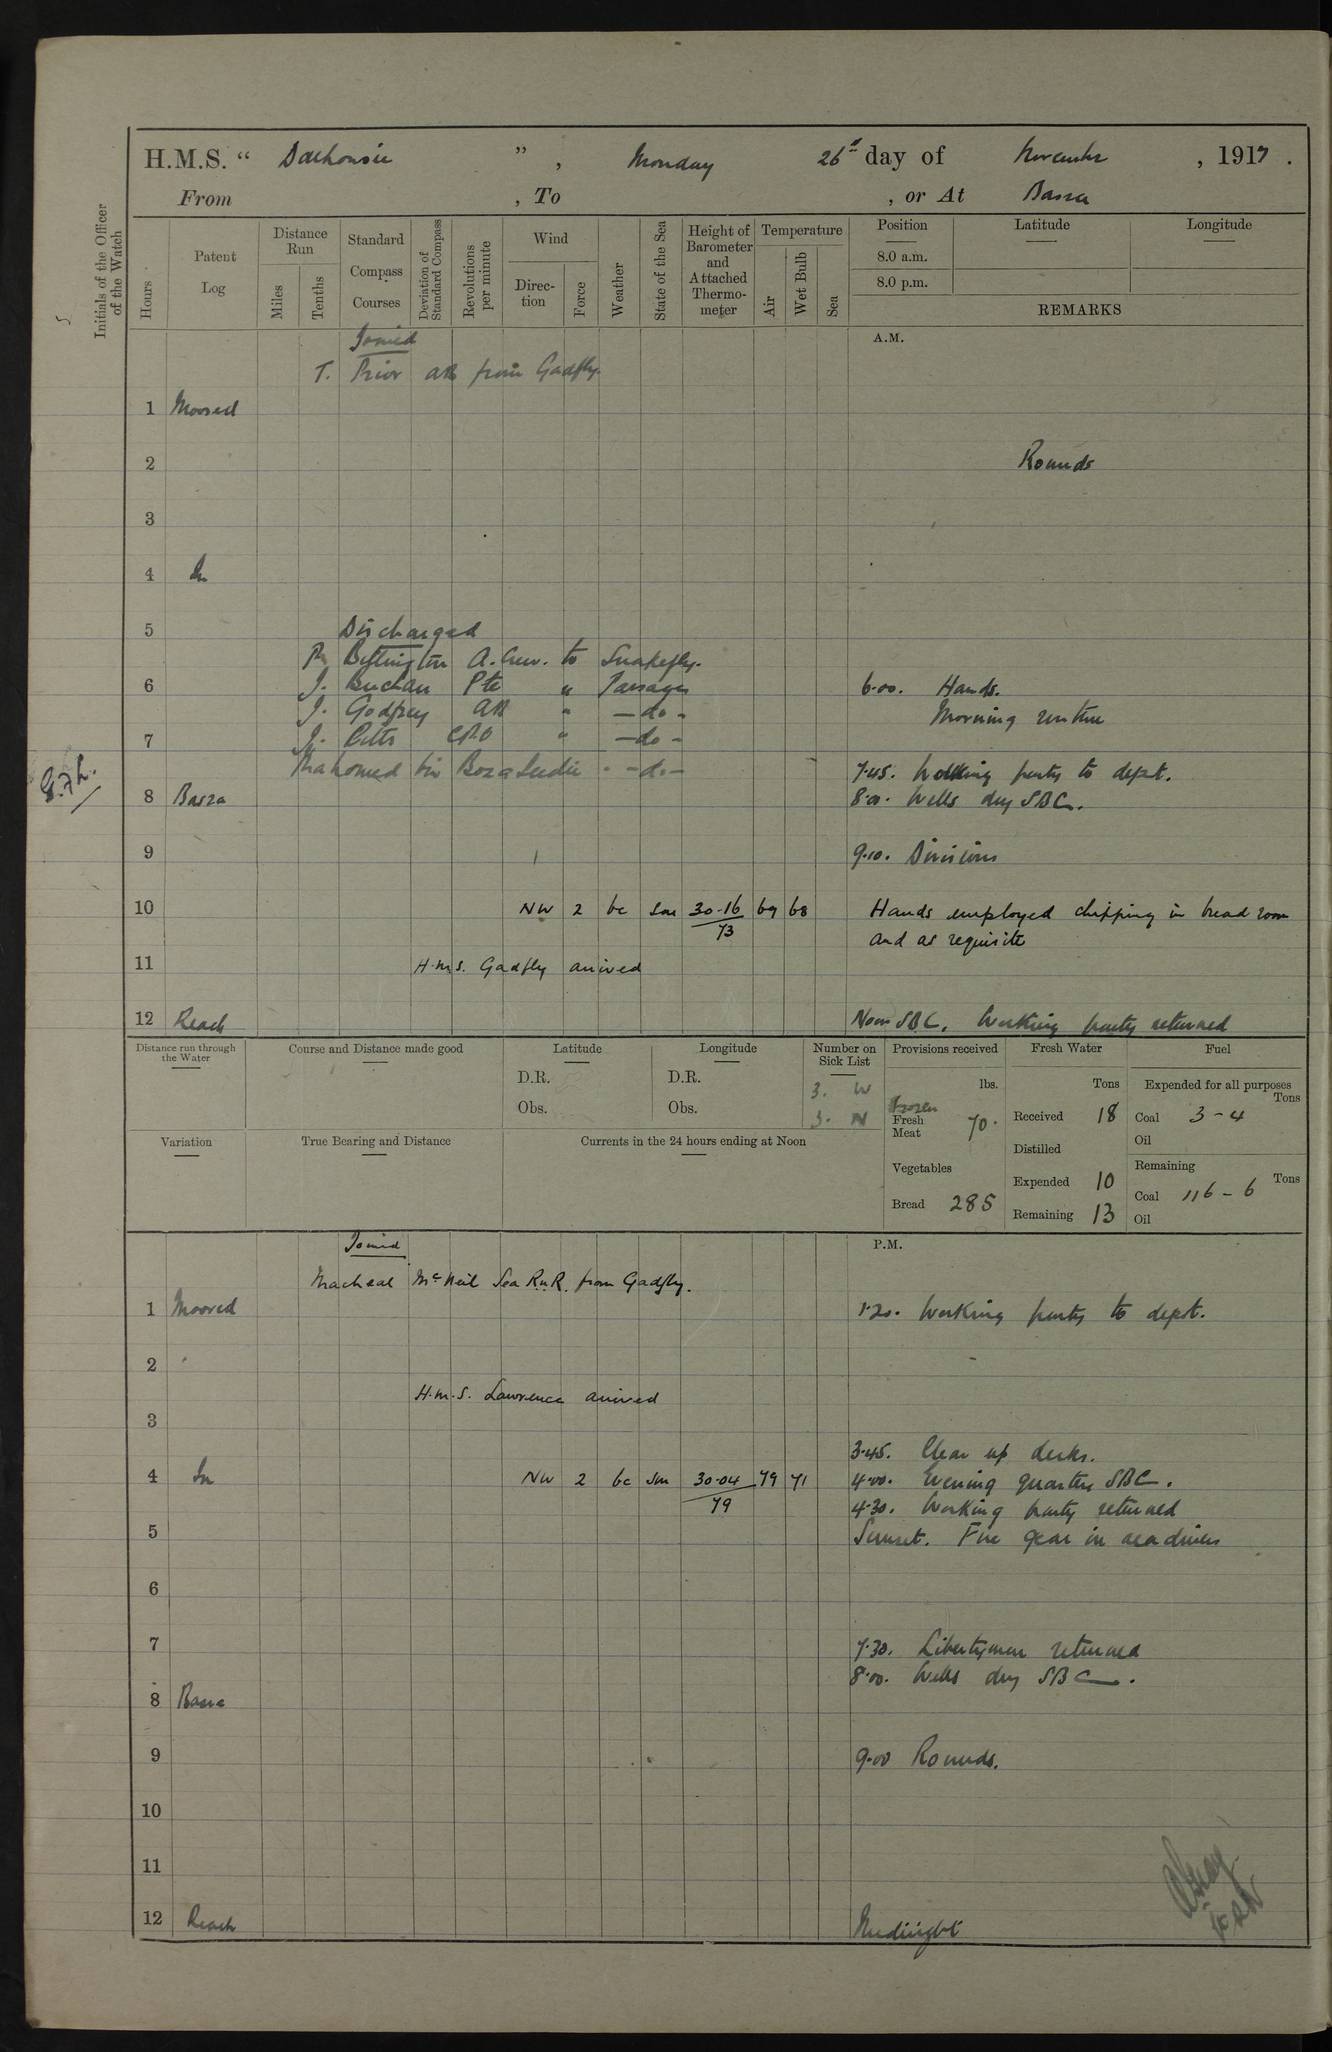 H.M.S. “ Dalhousie ” , Monday 26th day of November , 1917 .
From , To , or At Basra
Initials of the Officer of the Watch
Hours
Patent Log
Distance Run
Miles
Tenths
Standard Compass Courses
Deviation of Standard Compass
Revolutions per minute
Wind
Direction
Force
Weather
State of the Sea
Height of Barometer and Attached Thermometer
Temperature
Air
Wet Bulb
Sea
Position Latitude Longitude
8.0 a.m.
8.0 p.m.
REMARKS
Joined
A.M.
T. Prior AB from Gadfly.
1 Moored
2 Rounds
3
4 In
5 Discharged
A. Crew. to Snakefly.
6 J. Buchan Pte " Passages 6.00. Hands.
J. Godfrey AB " - do - Morning routine
7 J. CPO " - do -
Mahomed bin - do -
7.45. Working party to depot.
8 Basra 8.00. Wells dry SBC.
9 9.10. Divisions
10 NW 2 bc Sm 30.16 69 68 Hands employed chipping in bread room
73 and as requisite
11 H.M.S. Gadfly arrived
12 Reach Noon SBC. Working party returned
Distance run through the Water
Course and Distance made good
Latitude
Longitude
D.R. D.R.
Obs. Obs.
Number on Sick List
3. W
3. N
Provisions received
lbs.
Frozen
Fresh Meat 70.
Vegetables
Bread 285
Fresh Water
Tons
Received 18
Distilled
Expended 10
Remaining 13
Fuel
Expended for all purposes
Tons
Coal 3 - 4
Oil
Remaining
Tons
Coal 116 - 6
Oil
Variation
True Bearing and Distance
Currents in the 24 hours ending at Noon
Joined
P.M.
McNeil Sea RNR. from Gadfly.
1 Moored 1.20. Working party to depot.
2
H.M.S. Lawrence arrived
3
3.45. Clear up decks.
4 In NW 2 bc Sm 30.04 79 71 4.00. Evening quarters SBC.
79 4.30. Working party returned
5 Sunset. Fire gear in readiness
6
7 7.30. Libertymen returned
8.00. Wells dry SBC.
8 Basra
9 9.00 Rounds.
10
11
12 Reach Midnight